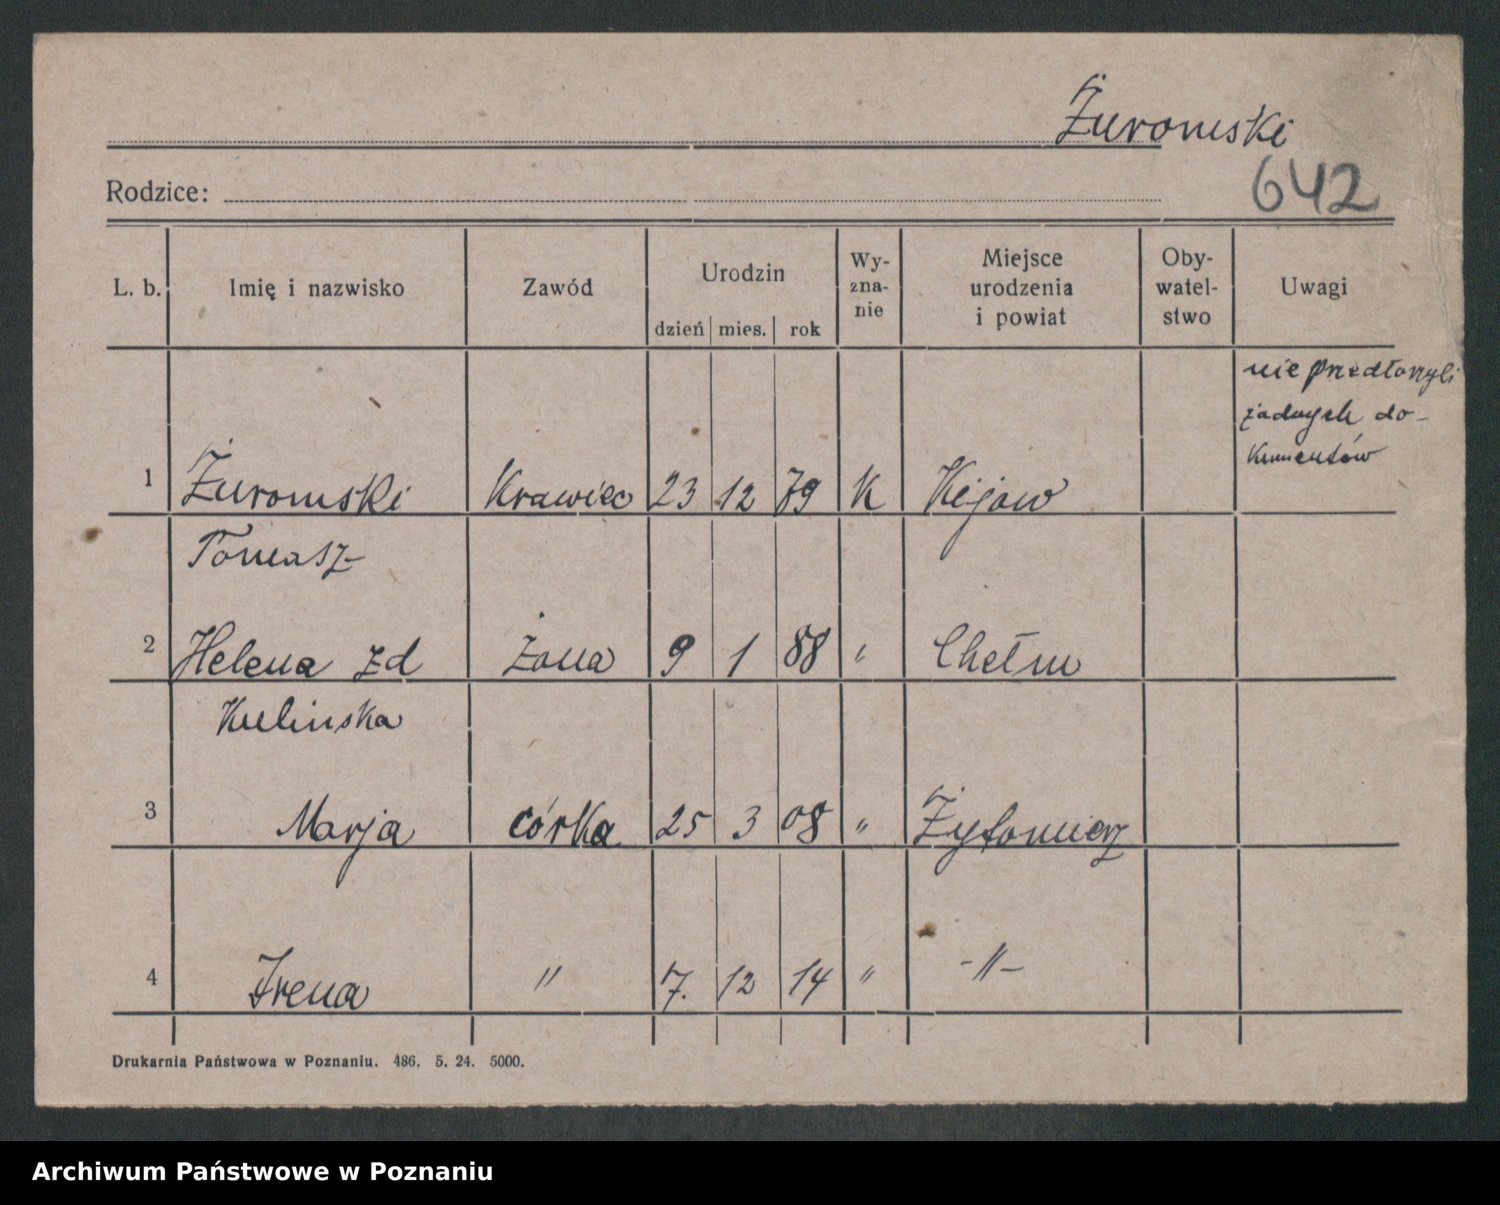 Żuromski
Rodzice:
642
L. b. Imię i nazwisko Zawód Urodzin dzień mies. rok Wy-zna-nie Miejsce urodzenia i powiat Oby-watel-stwo Uwagi
nie przedłożyli
żadnych do-
kumentów
1 Żuromski Krawiec 23 12 79 K Kijow
Tomasz
2 Helena zd żona 9 1 88 " Chełm
Kulinska
3 Marja córka 25 3 08 " Żytomierz
4 Irena " 7. 12 14 " -"-
Drukarnia Państwowa w Poznaniu. 486. 5. 24. 5000.
Archiwum Państwowe w Poznaniu